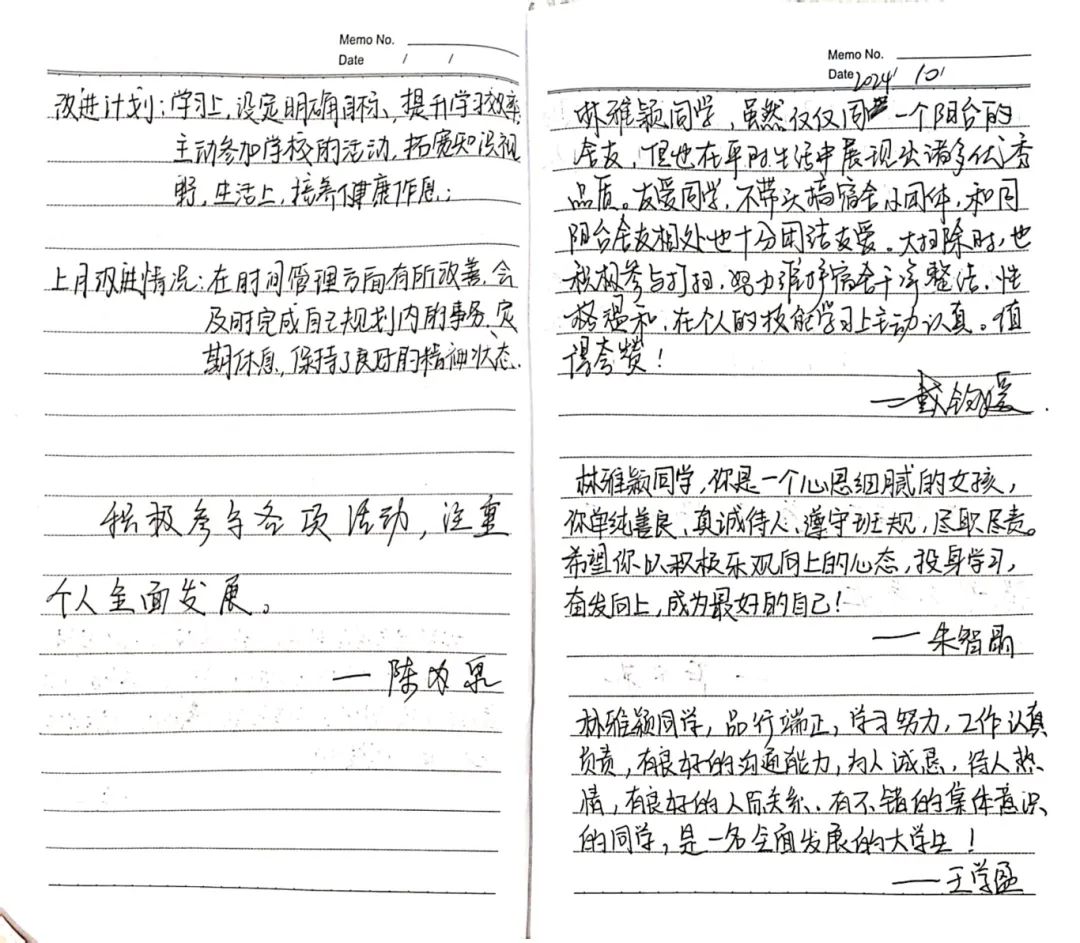 Memo No.
Date / /
改进计划：学习上，设定明确目标、提升学习效率，
主动参加学校的活动，拓宽知识视
野，生活上，培养健康作息；
上月改进情况：在时间管理方面有所改善，会
及时完成自己规划内的事务，定
期休息，保持了良好的精神状态.
积极参与各项活动，注重
个人全面发展。
— 陈
Memo No.
Date 2024 10
林雅颖同学，虽然仅仅同 一个阳台的
舍友，但也在平时生活中展现出诸多优秀
品质。友爱同学，不带头搞宿舍小团体，和同
阳台舍友相处也十分团结友爱。大扫除时，也
积极参与打扫，努力维护宿舍干净整洁，性
格温和，在个人的技能学习上主动认真。值
得夸赞！
— 戴钧媛.
林雅颖同学，你是一个心思细腻的女孩，
你单纯善良、真诚待人、遵守班规，尽职尽责。
希望你以积极乐观向上的心态，投身学习，
奋发向上，成为最好的自己！
— 朱智晶
林雅颖同学，品行端正，学习努力，工作认真
负责，有良好的沟通能力，为人诚恳，待人热
情，有良好的人际关系、有不错的集体意识
的同学，是一名全面发展的大学生！
— 王学盈